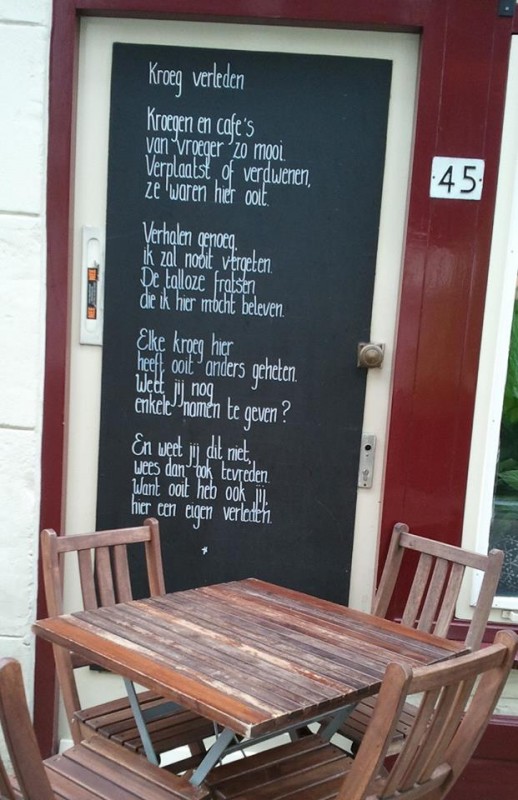 Kroeg verleden
Kroegen en cafe's
van vroeger zo mooi.
Verplaatst of verdwenen,
ze waren hier ooit.
Verhalen genoeg,
ik zal nooit vergeten.
De talloze fratsen
die ik hier mocht beleven.
Elke kroeg hier
heeft ooit anders geheten.
Weet jij nog
enkele namen te geven?
En weet jij dit niet,
wees dan ook tevreden.
Want ooit heb ook jij,
hier een eigen verleden.
·45·